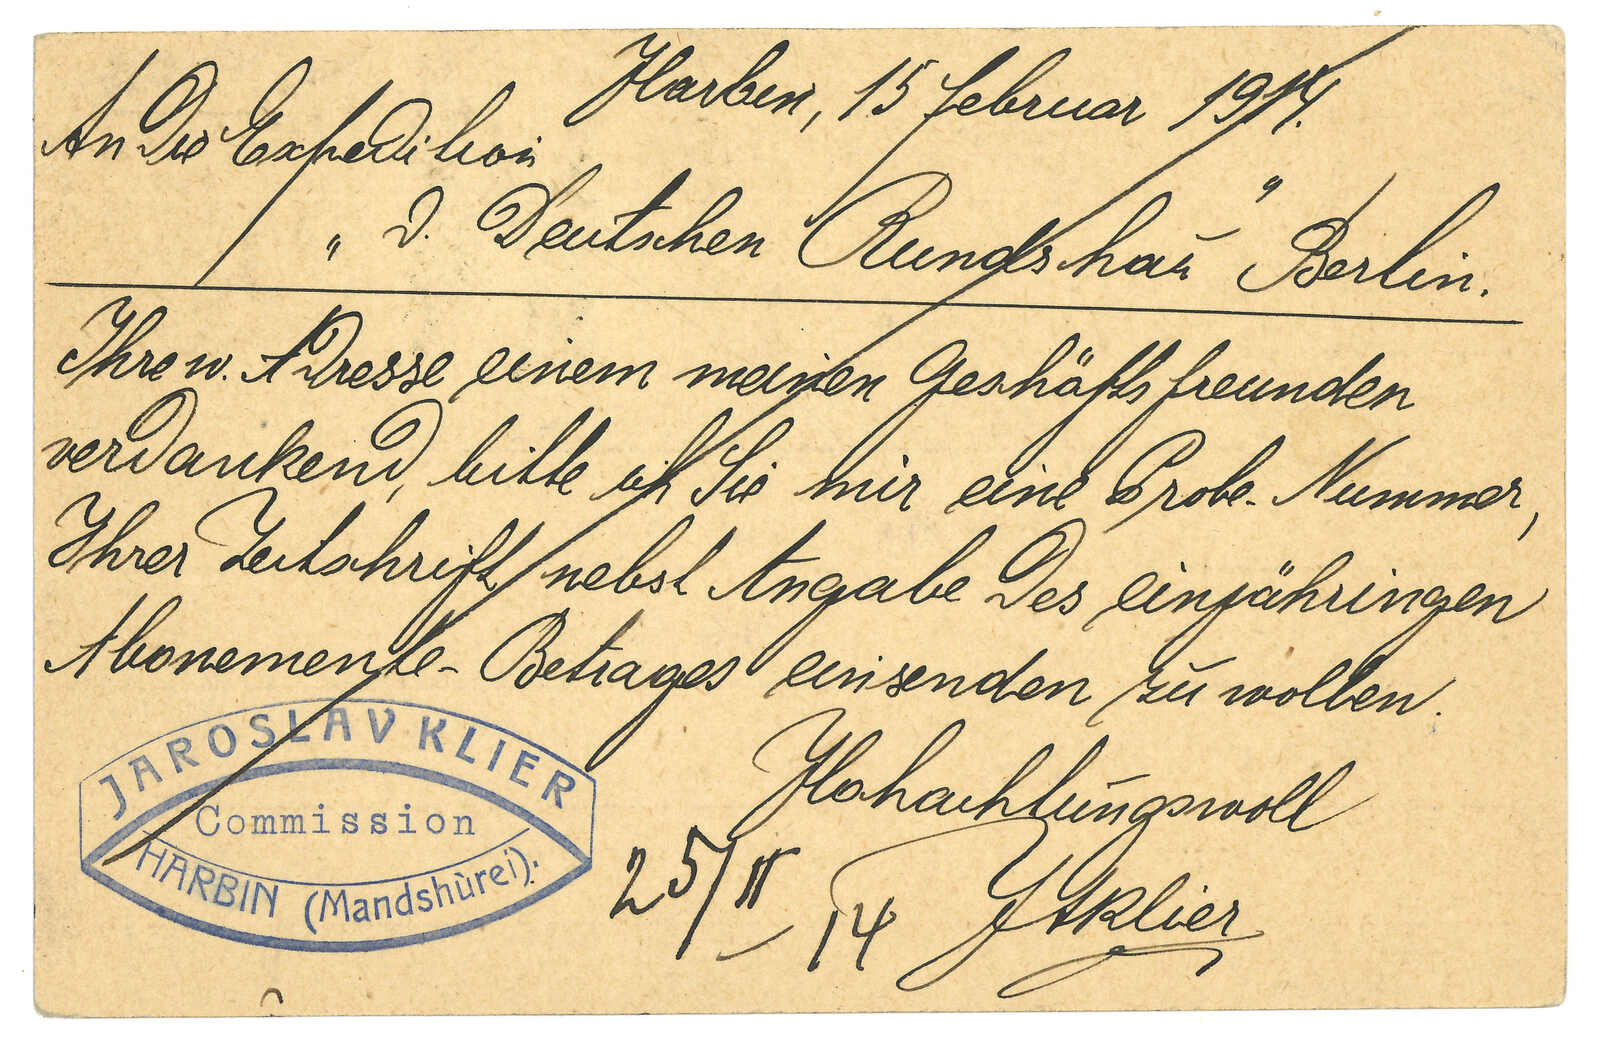 Harbin, 15 Februar 1914.
An Die Expedition
„ d. Deutschen Rundshau “ Berlin.
Ihre w. Adresse einem meinen Geshäftsfreunden
verdankend, bitte ich Sie mir eine Probe-Nummer,
Ihrer Zeitschrift nebst Angabe Des einjähringen
Abonemente-Betrages einsenden zu wollen.
Hohachtungswoll
JAKlier
25/II 14
JAROSLAV KLIER
Commission
HARBIN (Mandshùrei).